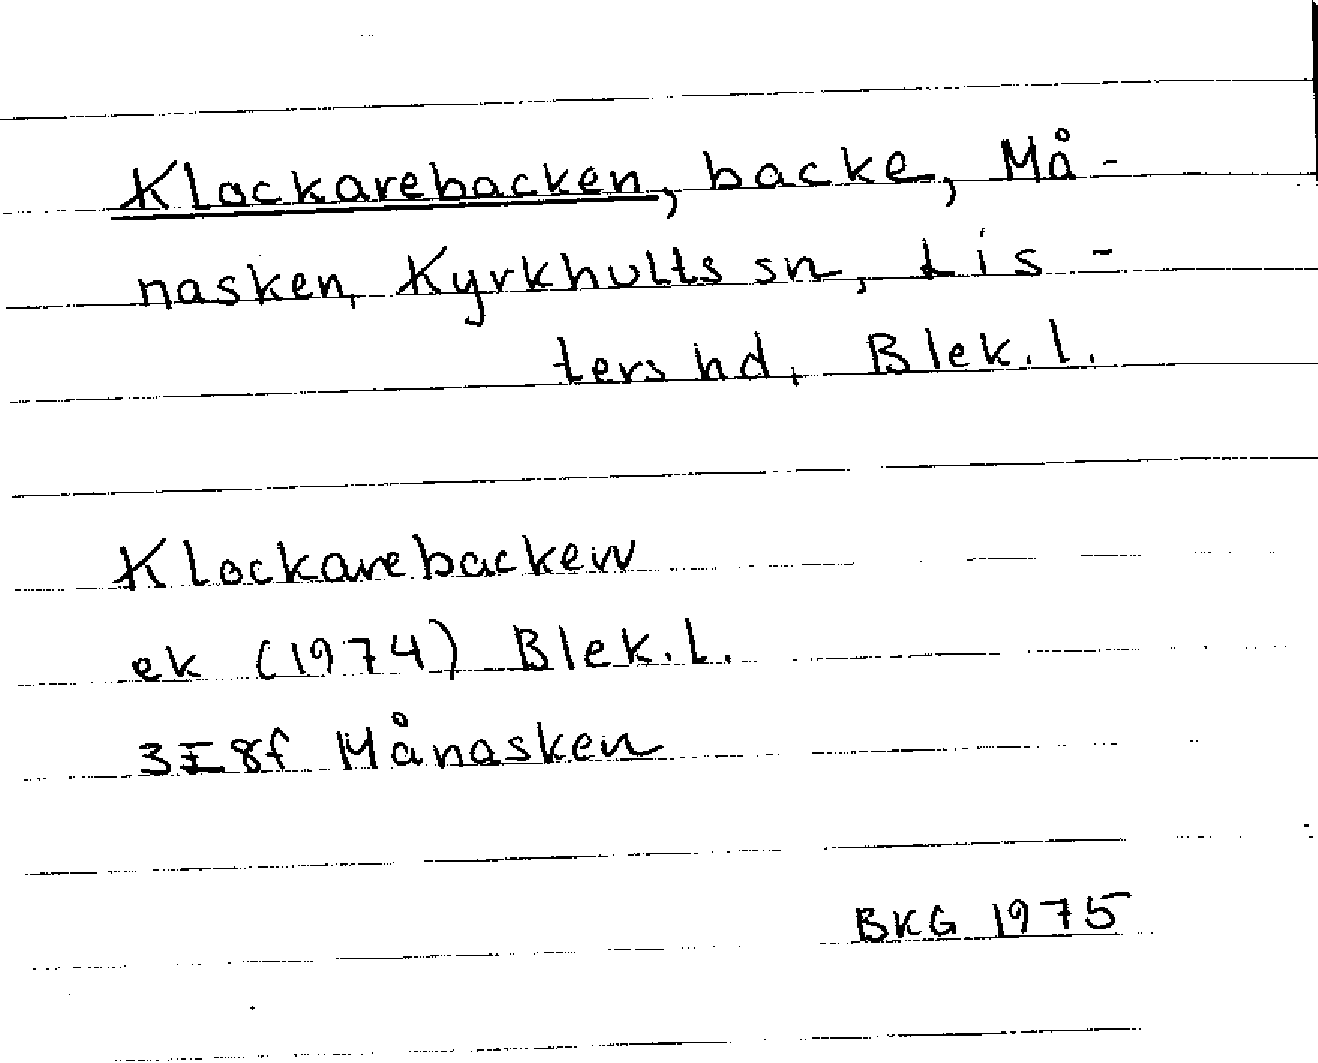 Klockarebacken, backe, Må-
nasken, Kyrkhults sn, Lis-
ters hd, Blek. l.
Klockarebacken
ek (1974) Blek. l.
3E8f Månasken
BKG 1975